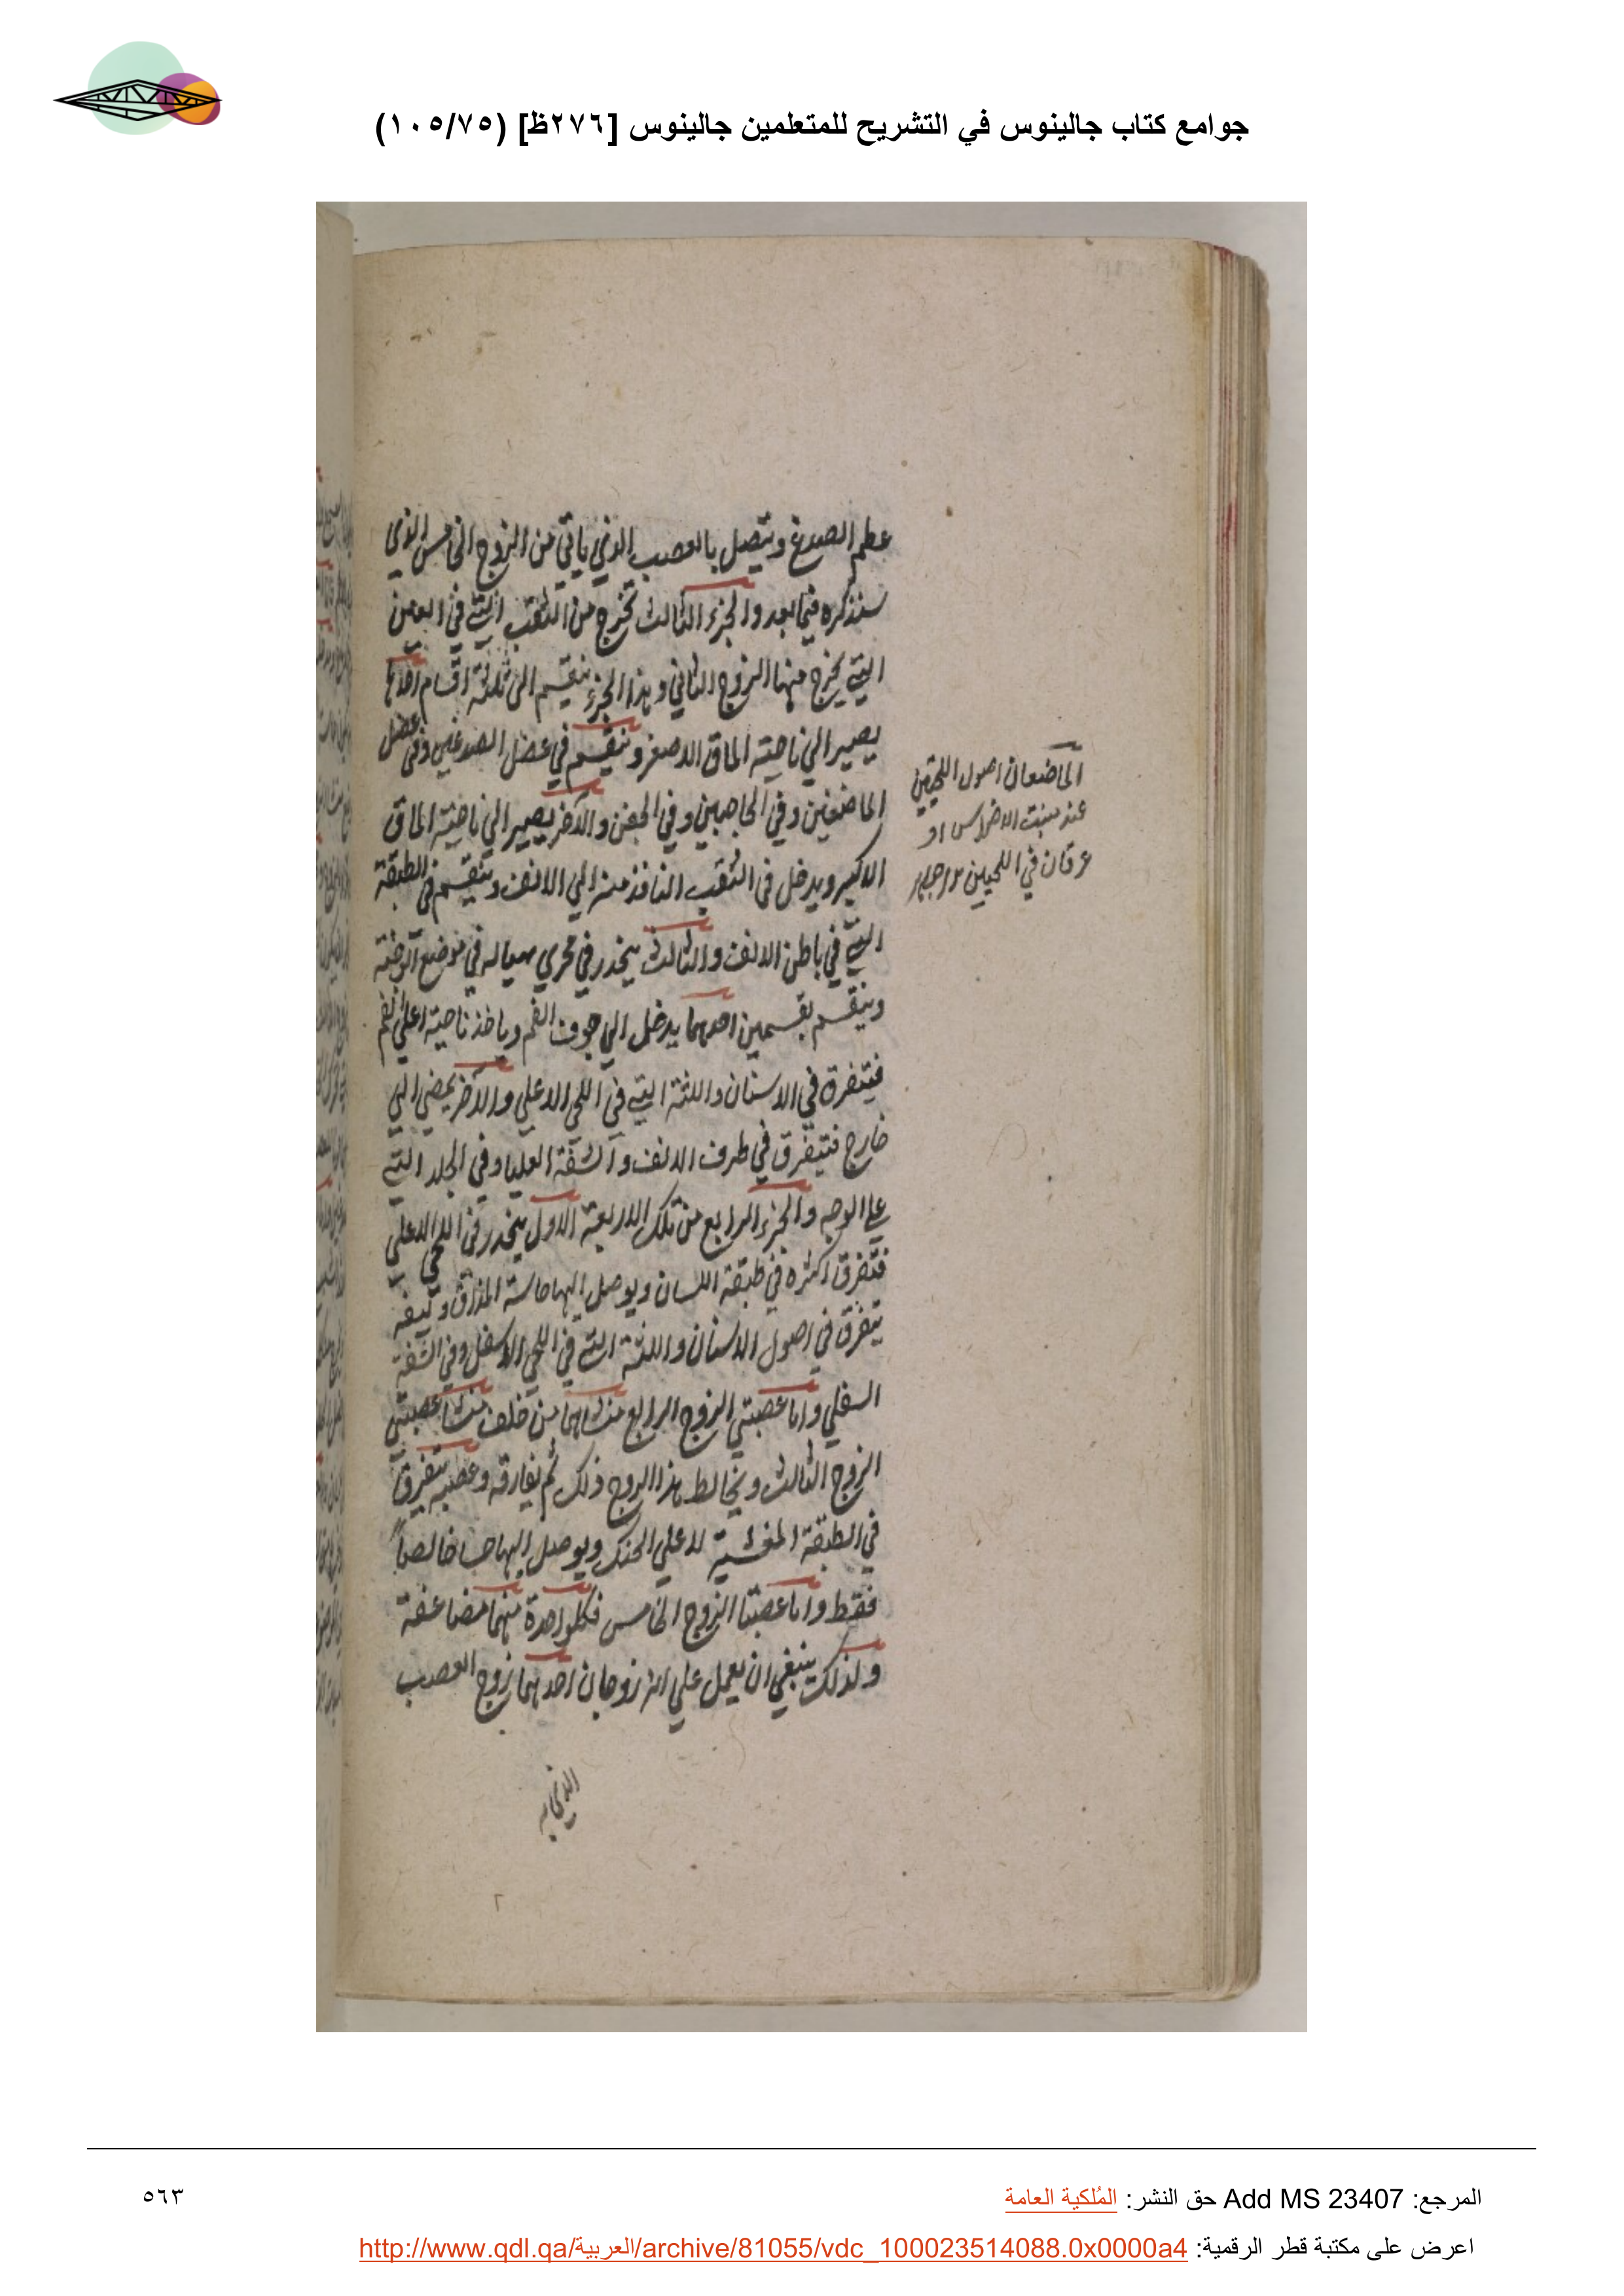 جوامع كتاب جالينوس في التشريح للمتعلمين جالينوس [٢٧٦ظ] (١٠٥/٧٥)
عظم الصدغ ويتصل بالعصب الذي ياتي من الزوج الخامس الذي
سنذكره فيما بعد والجزء الثالث يخرج من الثقب التي في العين
التي يخرج منها الزوج الثاني وهذا الجزء ينقسم الى ثلثة اقسام احدها
يصير الي ناحية الماق الاصغر وينقسم في عضل الصدغين وفي عضل
الماضغين وفي الحاجبين وفي الجفن والآخر يصير الي ناحية الماق
الاكبر ويدخل في الثقب النافذ منه الي الانف وينقسم في الطبقة
التي في باطن الانف والثالث ينحدر في مجري هيأ له في موضع الوجنة
وينقسم بقسمين احدهما يدخل الي جوف الفم وياخذ ناحية اعلي الفم
فيتفرق في الاسنان واللثة التي في اللحي الاعلي والآخر يمضي الي
خارج فيتفرق في طرف الانف والشفة العليا وفي الجلد التي
علي الوجه والجزء الرابع من تلك الاربعة الاول ينحدر في اللحي الاعلي
فتفرق اكثره في طبقة اللسان ويوصل اليها حاسة المذاق وبقيته
يتفرق في اصول الاسنان واللثة التي في اللحي الاسفل وفي الشفة
السفلي واما عصبتي الزوج الرابع منشاهما من خلف منشا عصبتي
الزوج الثالث ويخالط هذا الزوج ذلك ثم يفارقه وعصبه يتفرق
في الطبقة المغشية لاعلي الحنك ويوصل اليها حسا خالصاً
فقط واما عصبتا الزوج الخامس فكلواحدة منهما مضاعفة
ولذلك ينبغي ان يعمل علي انه زوجان احدهما زوج العصب
الماضغان اصول اللحيين
عند منبت الاضراس او
عرقان في اللحيين
الذي به
المرجع: Add MS 23407 حق النشر: المُلكية العامة
٥٦٣
اعرض على مكتبة قطر الرقمية: http://www.qdl.qa/العربية/archive/81055/vdc_100023514088.0x0000a4